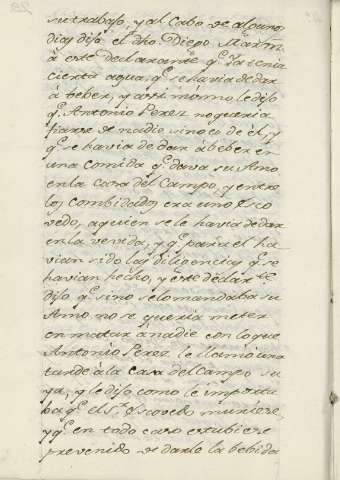 su trabajo, y al Cabo de algunos
dias dijo el dho. Diego Martin
à este declarante qe. ya tenia
cierta agua qe. se havia de dar
à beber, y assi mismo le dijo
qe. Antonio Perez no queria
fiarse de nadie sino de èl, y
qe. se havia de dar à beber en
una comida qe. dava su Amo
en la Casa del Campo, y entre
los combidados era uno Esco
vedo, a quien se le havia de dar
en la vevida, y qe. para el ha-
vian sido las diligencias qe. se
havian hecho, y este declarte.
dijo qe. si no se lo mandaba su
Amo no se queria meter
en matar à nadie con lo que
Antonio Perez le llamó una
tarde à la casa del Campo su
ya, y le dijo como le importa
ba qe. el Sr. Escovedo muriese,
y qe. en todo caso estubiese
prevenido de darlo la bebida